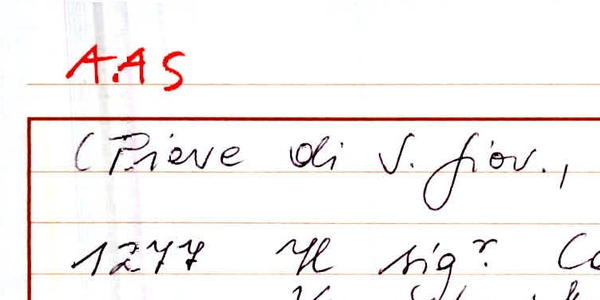 A.AS
(Pieve di S. Giov.,
1277 Il sig.r